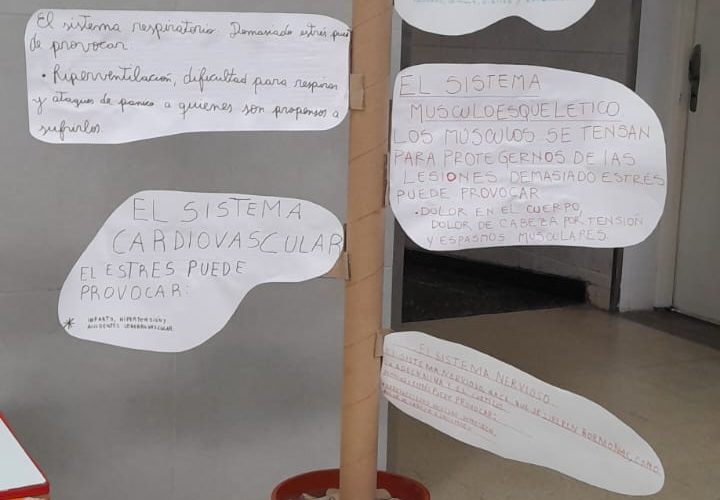 El sistema respiratorio: Demasiado estrés puede
de provocar:
• Hiperventilación, dificultad para respirar
y ataques de panico a quienes son propensos a
sufrirlos.
EL SISTEMA
MUSCULOESQUELETICO
LOS MÚSCULOS SE TENSAN
PARA PROTEGERNOS DE LAS
LESIONES DEMASIADO ESTRÉS
PUEDE PROVOCAR
• DOLOR EN EL CUERPO,
DOLOR DE CABEZA POR TENSIÓN
Y ESPASMOS MUSCULARES
EL SISTEMA
CARDIOVASCULAR
EL ESTRES PUEDE
PROVOCAR:
* INFARTO, HIPERTENSIÓN Y
ACCIDENTES CEREBROVASCULAR
EL SISTEMA NERVIOSO
EL SISTEMA NERVIOSO HACE QUE SE LIBEREN HORMONAS, COMO
LA ADRENALINA Y EL CORTISOL
PUEDE PROVOCAR: